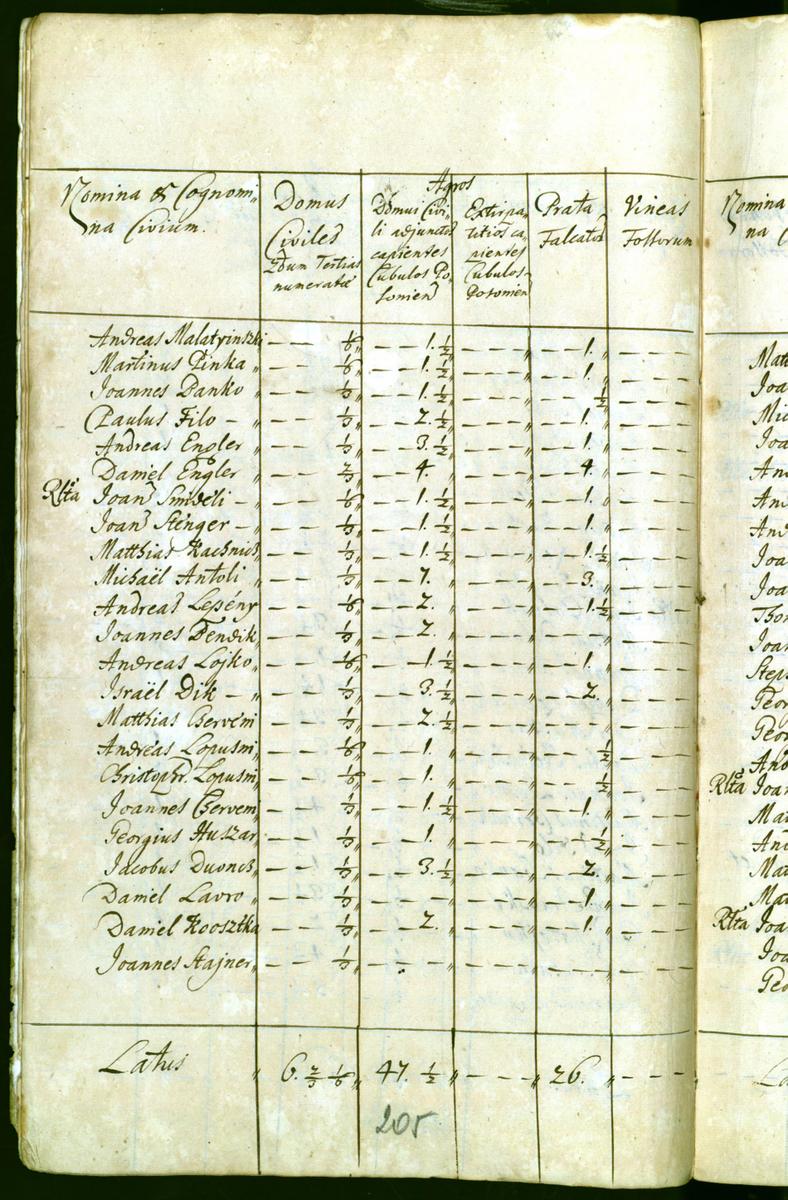 Nomina & Cognomi„
na Civium.
Domus
Civiles
2dum Tertias
numeratæ
Agros
Domui Civi„
li adjunctos
capientes
Cubulos Po„
sonien
Extirpa„
titios ca„
pientes
Cubulos
Posonien
Prata
Falcatorū
Vineas
Fossorum
Andreas Malatyinszki — — 1/6 „ — — 1. 1/2 „ — — — „ — — 1. „ — — —
Martinus Pinka „ — — 1/6 „ — — 1. 1/2 „ — — — „ — — 1. „ — — —
Joannes Danko „ — — 1/3 „ — — 1. 1/2 „ — — — „ — — 1/2 „ — — —
Paulus Filo — „ — — 1/3 „ — — 2. 1/2 „ — — — „ — — 1. „ — — —
Andreas Engler „ — — 1/3 „ — — 3. 1/2 „ — — — „ — — 1. „ — — —
Daniel Engler „ — — 2/3 „ — — 4. „ — — — „ — — 4. „ — — —
Rlta Joan Smideli — „ — — 1/6 „ — — 1. 1/2 „ — — — „ — — 1. „ — — —
Joan Stenger — „ — — 1/3 „ — — 1. 1/2 „ — — — „ — — 1. „ — — —
Matthias Kachnich „ — — 1/3 „ — — 1. 1/2 „ — — — „ — — 1. 1/2 „ — — —
Michaël Antoli „ — — 1/3 „ — — 7. „ — — — „ — — 3. „ — — —
Andreas Lepény „ — — 1/6 „ — — 2. „ — — — „ — — 1. 1/2 „ — — —
Joannes Fendik „ — — 1/3 „ — — 2. „ — — — „ — — — „ — — —
Andreas Lojko „ — — 1/6 „ — — 1. 1/2 „ — — — „ — — 1. „ — — —
Israël Dik — „ — — 1/3 „ — — 3. 1/2 „ — — — „ — — 2. „ — — —
Matthias Cserveni — — 1/3 „ — — 2. 1/2 „ — — — „ — — — „ — — —
Andreas Lopusni „ — — 1/6 „ — — 1. „ — — — „ — — 1/2 „ — — —
Christophr. Lopusni „ — — 1/6 „ — — 1. „ — — — „ — — 1/2 „ — — —
Joannes Cserveni „ — — 1/3 „ — — 1. 1/2 „ — — — „ — — 1. „ — — —
Georgius Huszar „ — — 1/3 „ — — 1. „ — — — „ — — 1/2 „ — — —
Jacobus Duonch „ — — 1/3 „ — — 3. 1/2 „ — — — „ — — 2. „ — — —
Daniel Lavro „ — — 1/3 „ — — — „ — — — „ — — 1. „ — — —
Daniel Koosztka — — 1/3 „ — — 2. „ — — — „ — — 1. „ — — —
Joannes Stajner „ — — 1/3 „ — — — „ — — — „ — — — „ — — —
Latus „ 6. 2/3 1/6 „ 47. 1/2 „ — — — „ 26. „ — — —
205
Nomina
na C
Matt
Joa
Mic
Joa
An
And
And
Joa
Joa
Tho
Joan
Step
Geor
Geor
And
Rlta Joan
Ma
And
Mat
Mat
Rlta Joa
Joa
Geo
La